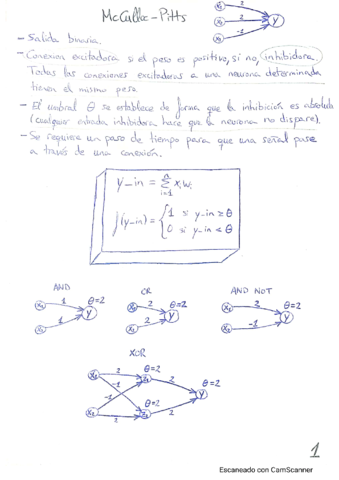 McCulloc-Pitts
X₁ 2
X₂ 2 Y
X₃ -1
- Salida binaria.
- Conexión excitadora si el peso es positivo, si no, inhibidora.
Todas las conexiones excitadoras a una neurona determinada
tienen el mismo peso.
- El umbral θ se establece de forma que la inhibición es absoluta
(cualquier entrada inhibidora hace que la neurona no dispare).
- Se requiere un paso de tiempo para que una señal pase
a través de una conexión.
y_in = Σ xᵢwᵢ
n
i=1
f(y_in) = { 1 si y_in ≥ θ
0 si y_in < θ
AND OR AND NOT
X₁ 1 θ=2 Y X₁ 2 θ=2 Y X₁ 2 θ=2 Y
X₂ 1 X₂ 2 X₂ -1
XOR
X₁ 2 θ=2 Z₁ 2 θ=2
-1 -1 Y
X₂ 2 Z₂ 2
θ=2
1
Escaneado con CamScanner